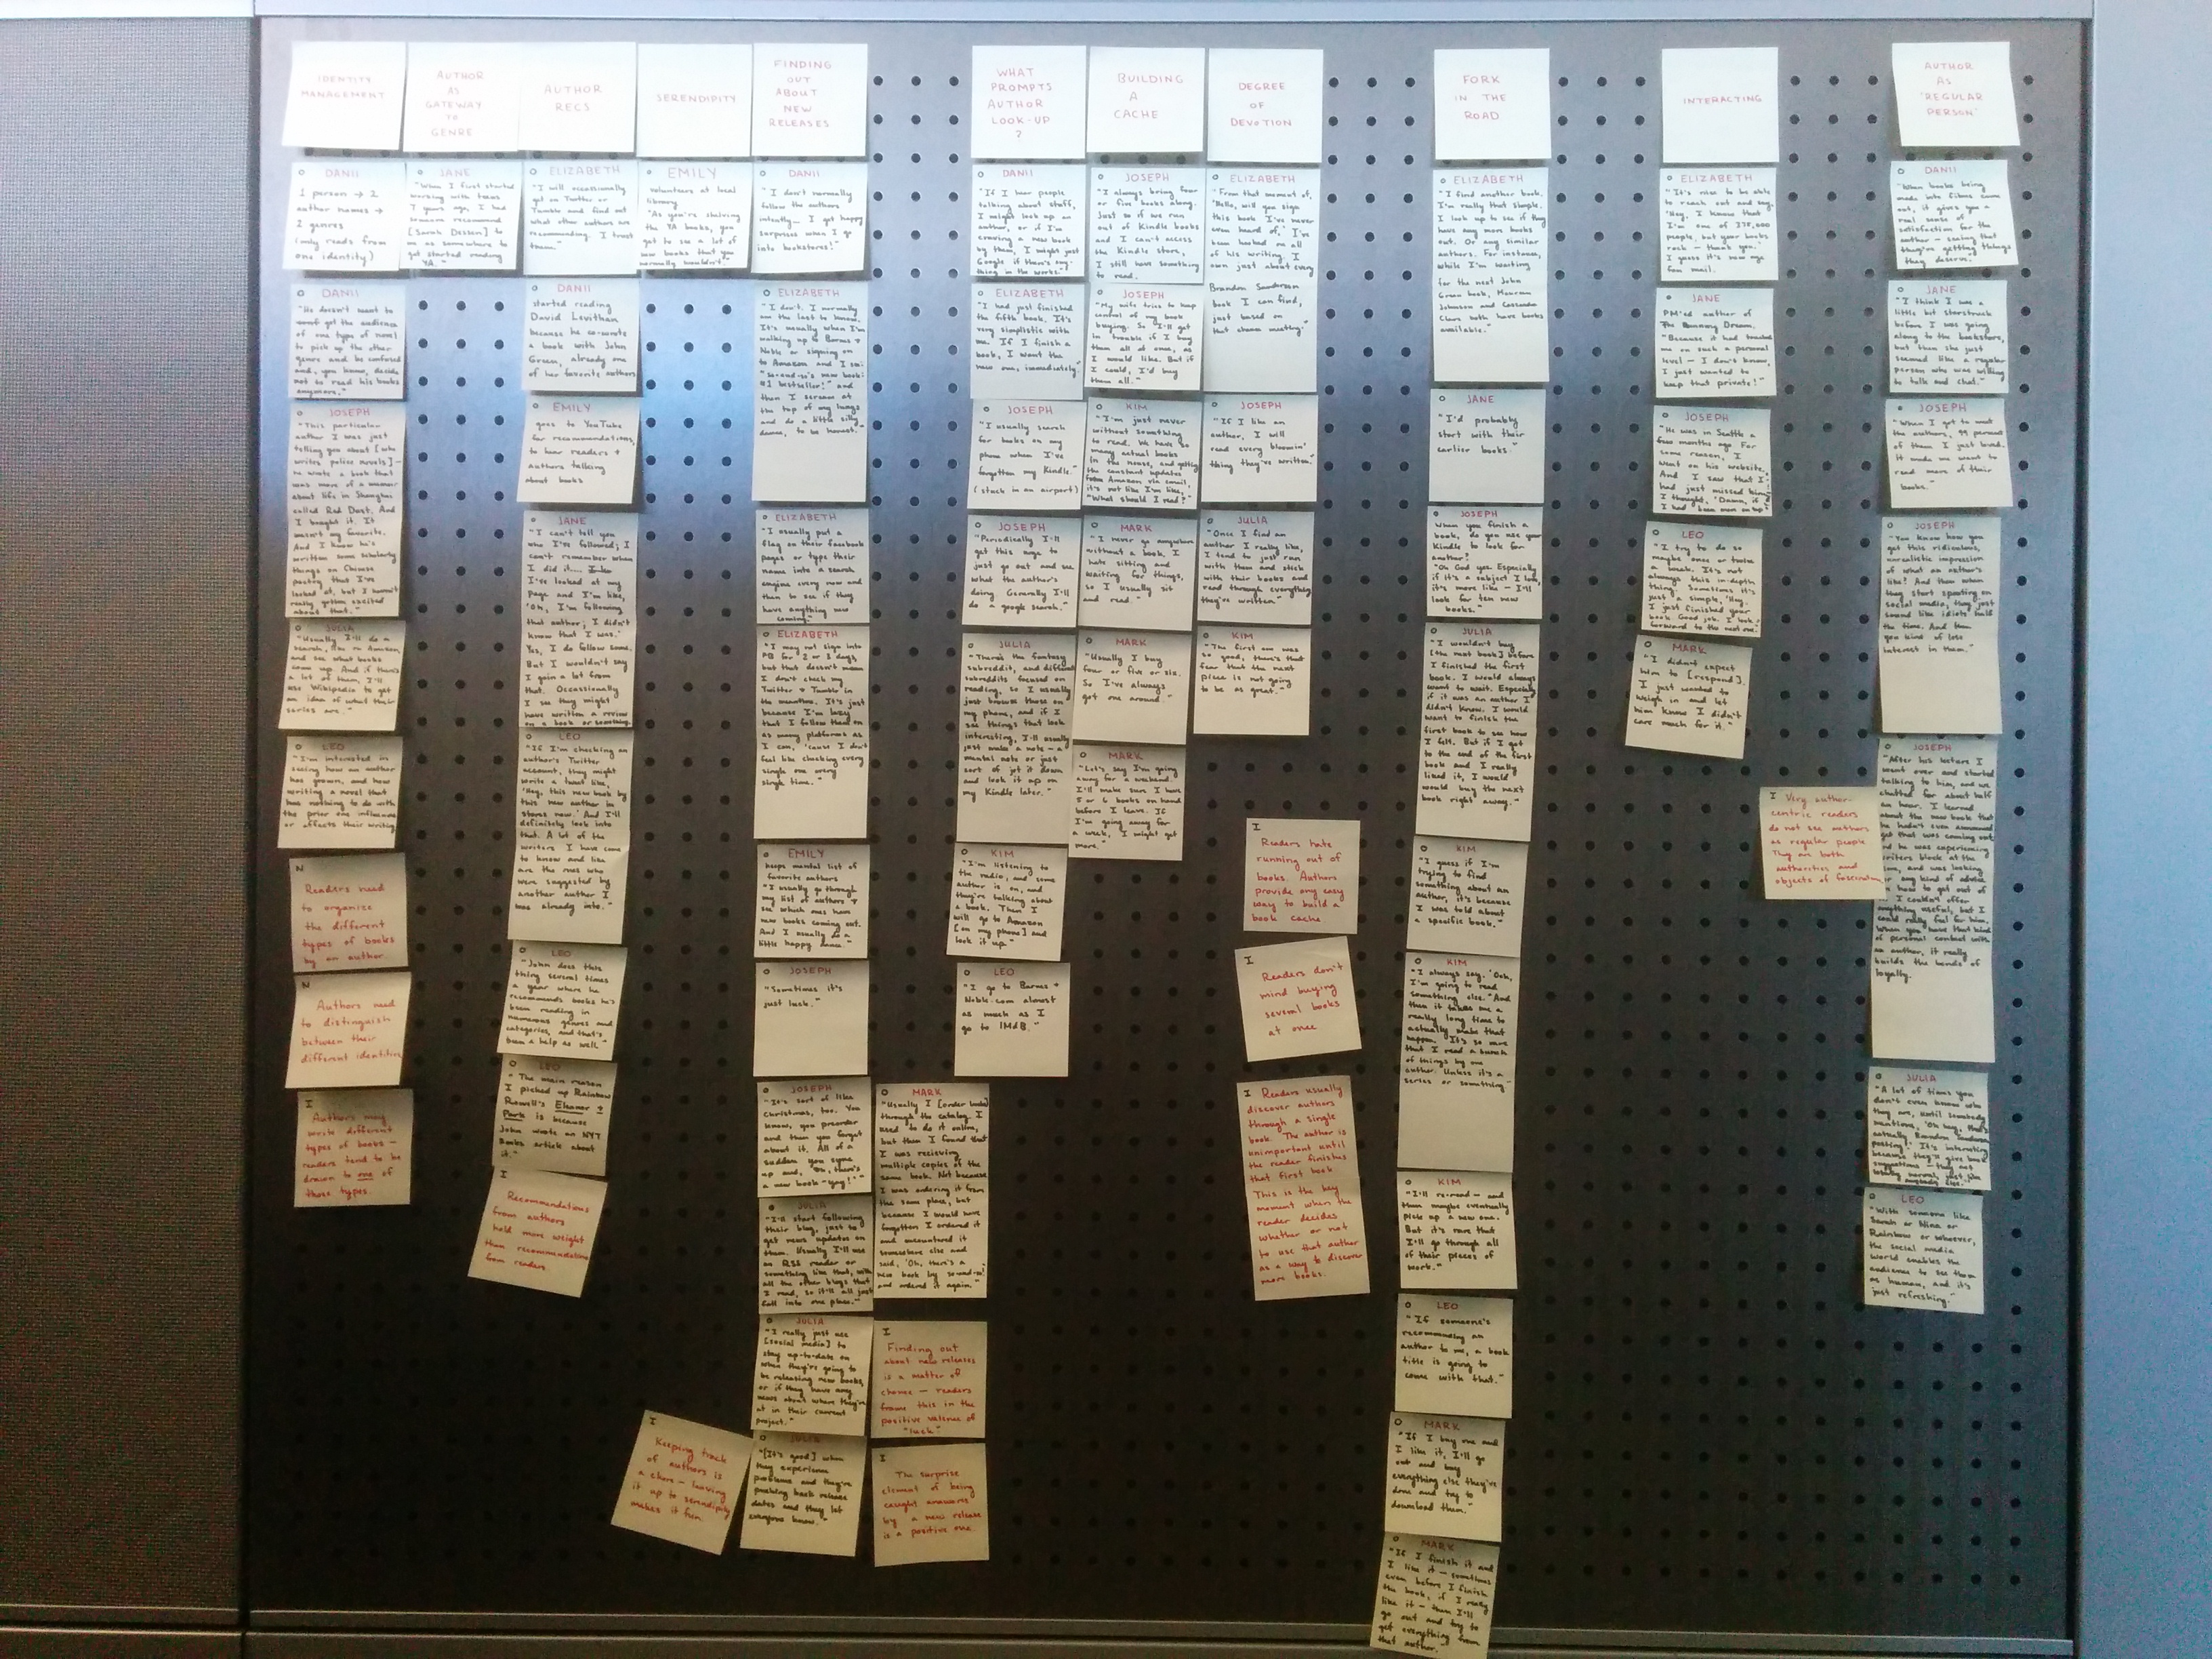 IDENTITY
MANAGEMENT
AUTHOR
AS
GATEWAY
TO
GENRE
AUTHOR
RECS
SERENDIPITY
FINDING
OUT
ABOUT
NEW
RELEASES
WHAT
PROMPTS
AUTHOR
LOOK-UP
?
BUILDING
A
CACHE
DEGREE
OF
DEVOTION
FORK
IN THE
ROAD
INTERACTING
AUTHOR
AS
'REGULAR
PERSON'
DANII
1 person → 2
author names →
2 genres
(only reads from
one identity)
DANII
"He doesn't want to
get the audience
of one type of novel
to pick up the other
genre and be confused
and, you know, decide
not to read his books
anymore."
JOSEPH
"This particular
author I was just
telling you about [who
writes police novels] —
he wrote a book that
was more of a memoir
about life in Shanghai
called Red Dust. And
I bought it. It
wasn't my favorite.
And I know he's
written some scholarly
things on Chinese
poetry that I've
looked at, but I haven't
really gotten excited
about that."
JULIA
"Usually I'll do a
search, like on Amazon,
and see what books
come up. And if there's
a lot of them, I'll
use Wikipedia to get
an idea of what their
series are."
LEO
"I'm interested in
seeing how an author
has grown, and how
writing a novel that
has nothing to do with
the prior one influences
or affects their writing."
N
Readers need
to organize
the different
types of books
by an author
N
Authors need
to distinguish
between their
different identities
I
Authors may
write different
types of books —
readers tend to be
drawn to one of
those types.
JANE
"When I first started
working with teens
7 years ago, I had
someone recommend
[Sarah Dessen] to
me as somewhere to
get started reading
YA."
ELIZABETH
"I will occasionally
get on Twitter or
Tumblr and find out
what other authors are
recommending. I trust
them."
DANII
started reading
David Levithan
because he co-wrote
a book with John
Green, already one
of her favorite authors
EMILY
goes to YouTube
for recommendations,
to hear readers +
authors talking
about books
JANE
"I can't tell you
who I've followed; I
can't remember when
I did it....
I've looked at my
page and I'm like,
'Oh, I'm following
that author; I didn't
know that I was.'
Yes, I do follow some.
But I wouldn't say
I gain a lot from
that. Occasionally
I see they might
have written a review
on a book or something."
LEO
"If I'm checking an
author's Twitter
account, they might
write a tweet like,
'Hey, this new book by
this new author in
stores now.' And I'll
definitely look into
that. A lot of the
writers I have come
to know and like
are the ones who
were suggested by
another author I
was already into."
LEO
"John does this
thing several times
a year where he
recommends books he's
been reading in
numerous genres and
categories, and that's
been a help as well."
LEO
"The main reason
I picked up Rainbow
Rowell's Eleanor +
Park is because
John wrote an NYT
Books article about
it."
I
Recommendations
from authors
hold more weight
than recommendations
from readers
EMILY
volunteers at local
library
"As you're shelving
the YA books, you
get to see a lot of
new books that you
normally wouldn't."
DANII
"I don't normally
follow the authors
intently — I get happy
surprises when I go
into bookstores!"
ELIZABETH
"I don't. I normally
am the last to know.
It's usually when I'm
walking up to Barnes +
Noble or signing on
to Amazon and I see:
'So-and-so's new book:
#1 bestseller!' and
then I scream at
the top of my lungs
and do a little silly
dance, to be honest."
ELIZABETH
"I usually put a
flag on their Facebook
pages or type their
name into a search
engine every now and
then to see if they
have anything new
coming."
ELIZABETH
"I may not sign into
FB for 2 or 3 days,
but that doesn't mean
I don't check my
Twitter + Tumblr in
the meantime. It's just
because I'm lazy
that I follow them on
as many platforms as
I can, 'cause I don't
feel like checking every
single one every
single time."
EMILY
keeps mental list of
favorite authors
"I usually go through
my list of authors +
see which ones have
new books coming out.
And I usually do a
little happy dance."
JOSEPH
"Sometimes it's
just luck."
JOSEPH
"It's sort of like
Christmas, too. You
know, you preorder
and then you forget
about it. All of a
sudden you sync
up and, 'Oh, there's
a new book — yay!'"
JULIA
"I'll start following
their blog, just to
get news updates on
them. Usually I'll use
an RSS reader or
something like that, with
all the other blogs that
I read, so it'll all just
fall into one place."
JULIA
"I really just use
[social media] to
stay up-to-date on
when they're going to
be releasing new books,
or if they have any
news about where they're
at in their current
project."
JULIA
"[It's good] when
they experience
problems and they're
pushing back release
dates and they let
everyone know."
I
Keeping track
of authors is
a chore — leaving
it up to serendipity
makes it fun
MARK
"Usually I [order books]
through the catalog. I
used to do it online,
but then I found that
I was recieving
multiple copies of the
same book. Not because
I was ordering it from
the same place, but
because I would have
forgotten I ordered it
and encountered it
somewhere else and
said, 'Oh, there's a
new book by so-and-so!'
and ordered it again."
I
Finding out
about new releases
is a matter of
chance — readers
frame this in the
positive valence of
"luck"
I
The surprise
element of being
caught unawares
by a new release
is a positive one.
DANII
"If I hear people
talking about stuff,
I might look up an
author, or if I'm
craving a new book
by them, I might just
Google if there's any-
thing in the works."
ELIZABETH
"I had just finished
the fifth book. It's
very simplistic with
me. If I finish a
book, I want the
new one, immediately."
JOSEPH
"I usually search
for books on my
phone when I've
forgotten my Kindle."
(stuck in an airport)
JOSEPH
"Periodically I'll
get this urge to
just go out and see
what the author's
doing. Generally I'll
do a google search."
JULIA
"There's the fantasy
subreddit, and different
subreddits focused on
reading, so I usually
just browse those on
my phone, and if I
see things that look
interesting, I'll usually
just make a note — a
mental note or just
sort of jot it down
and look it up on
my Kindle later."
KIM
"I'm listening to
the radio, and some
author is on, and
they're talking about
a book. Then I
will go to Amazon
[on my phone] and
look it up."
LEO
"I go to Barnes +
Noble.com almost
as much as I
go to IMdB."
JOSEPH
"I always bring four
or five books along.
Just so if we run
out of Kindle books
and I can't access
the Kindle store,
I still have something
to read.
JOSEPH
"My wife tries to keep
control of my book
buying. So I'll get
in trouble if I buy
them all at once, as
I would like. But if
I could, I'd buy
them all."
KIM
"I'm just never
without something
to read. We have so
many actual books
in the house, and getting
the constant updates
from Amazon via email,
it's not like I'm like,
'What should I read?'"
MARK
"I never go anywhere
without a book. I
hate sitting and
waiting for things,
so I usually sit
and read."
MARK
"Usually I buy
four or five or six.
So I've always
got one around."
MARK
"Let's say I'm going
away for a weekend.
I'll make sure I have
5 or 6 books on hand
before I leave. If
I'm going away for
a week, I might get
more."
ELIZABETH
"From that moment of,
'Hello, will you sign
this book I've never
even heard of,' I've
been hooked on all
of his writing. I
own just about every
Brandon Sanderson
book I can find,
just based on
that chance meeting."
JOSEPH
"If I like an
author, I will
read every bloomin'
thing they've written."
JULIA
"Once I find an
author I really like,
I tend to just run
with them and stick
with their books and
read through everything
they've written."
KIM
"The first one was
so good, there's that
fear that the next
piece is not going
to be as great."
I
Readers hate
running out of
books. Authors
provide any easy
way to build a
book cache
I
Readers don't
mind buying
several books
at once
I
Readers usually
discover authors
through a single
book. The author is
unimportant until
the reader finishes
that first book
This is the key
moment when the
reader decides
whether or not
to use that author
as a way to discover
more books.
ELIZABETH
"I find another book.
I'm really that simple.
I look up to see if they
have any more books
out. Or any similar
authors. For instance,
while I'm waiting
for the next John
Green book, Maureen
Johnson and Cassandra
Clare both have books
available."
JANE
"I'd probably
start with their
earlier books."
JOSEPH
When you finish a
book, do you use your
Kindle to look for
another?
"Oh God yes. Especially
if it's a subject I love,
it's more like I'll
look for ten new
books."
JULIA
"I wouldn't buy
[the next book] before
I finished the first
book. I would always
want to wait. Especially
if it was an author I
didn't know. I would
want to finish the
first book to see how
I felt. But if I got
to the end of the first
book and I really
liked it, I would
would buy the next
book right away."
KIM
"I guess if I'm
trying to find
something about an
author, it's because
I was told about
a specific book."
KIM
"I always say, 'Ooh,
I'm going to read
something else.' And
then it takes me a
really long time to
actually make that
happen. It's so rare
that I read a bunch
of things by one
author. Unless it's a
series or something."
KIM
"I'll re-read — and
then maybe eventually
pick up a new one.
But it's rare that
I'll go through all
of their pieces of
work."
LEO
"If someone's
recommending an
author to me, a book
title is going to
come with that."
MARK
"If I buy one and
I like it, I'll go
out and buy
everything else they've
done and try to
download them."
MARK
"If I finish it and
I like it — sometimes
even before I finish
the book, if I really
like it — then I'll
go out and try to
get everything from
that author."
ELIZABETH
"It's nice to be able
to reach out and say,
'Hey, I know that
I'm one of
people, but your books
rock — thank you.'
I guess it's new age
fan mail.
JANE
PM'ed author of
The Running Dream.
"Because it had touched
me on such a personal
level — I don't know,
I just wanted to
keep that private!"
JOSEPH
"He was in Seattle a
few months ago. For
some reason, I
went on his website.
And I saw that I
had just missed him.
I thought, 'Damn, if
I had been more on top'"
LEO
"I try to do so
maybe once or twice
a week. It's not
always this in-depth
thing. Sometimes it's
just a simple, 'Hey,
I just finished your
book. Good job. I look
forward to the next one.'
MARK
"I didn't expect
him to [respond].
I just wanted to
weigh in and let
him know I didn't
care much for it."
I
Very author-
centric readers
do not see authors
as regular people
They are both
authorities and
objects of fascination
DANII
"When books being
made into films come
out, it gives you a
real sense of
satisfaction for the
author — seeing that
they're getting things
they deserve."
JANE
"I think I was a
little bit starstruck
before I was going
along to the bookstore,
but then she just
seemed like a regular
person who was willing
to talk and chat."
JOSEPH
"When I got to meet
the authors, 99 percent
of them I just loved.
It made me want to
read more of their
books."
JOSEPH
"You know how you
get this ridiculous,
unrealistic impression
of what an author's
like? And then when
they start spouting on
social media, they just
sound like idiots half
the time. And then
you kind of lose
interest in them."
JOSEPH
"After his lecture I
went over and started
talking to him, and we
chatted for about half
an hour. I learned
about the new book that
he hadn't even announced
yet that was coming out,
and he was experiencing
writers block at the
time, and was asking
for any kind of advice
how to get out of
I couldn't offer
anything useful, but I
could really feel for him.
When you have that kind
of personal contact with
an author, it really
builds the bonds of
loyalty.
JULIA
"A lot of times you
don't even know who
they are, until somebody
mentions, 'Oh hey, that's
actually Brandon Sanderson
posting.' It's interesting
because they'll give book
suggestions — they act
totally normal, just like
anybody else."
LEO
"With someone like
Sarah or Nina or
Rainbow or whoever,
the social media
world enables the
audience to see them
as human, and it's
just refreshing."